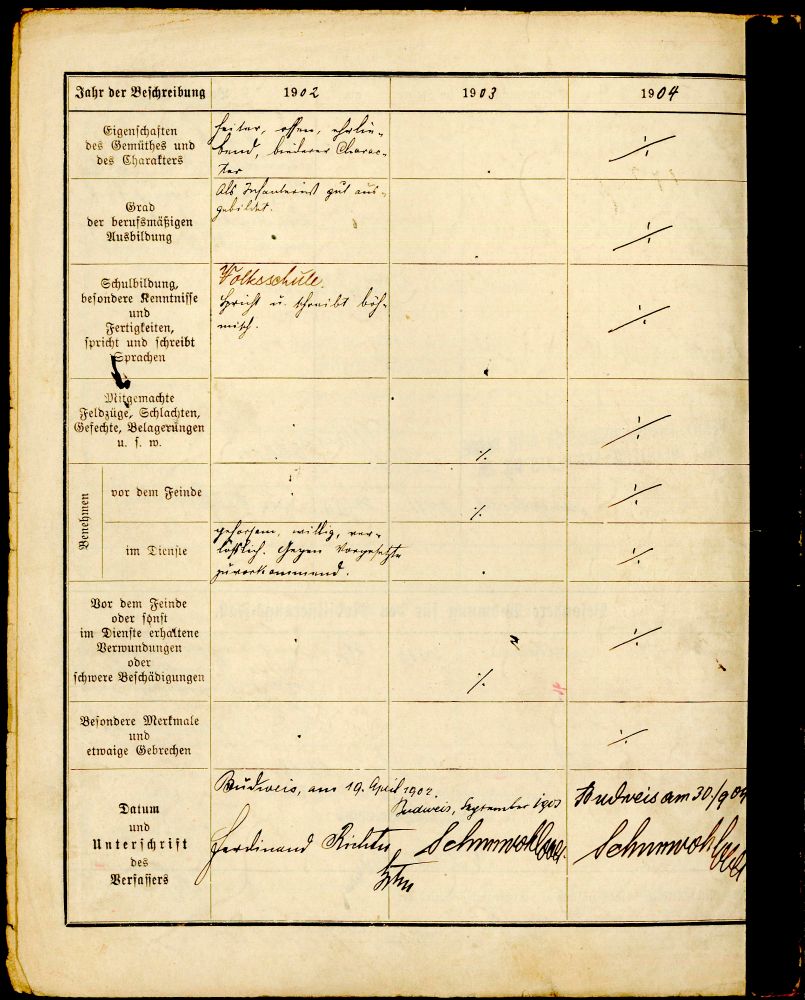 Jahr der Beschreibung 1902 1903 1904
Eigenschaften
des Gemüthes und
des Charakters
heiter, offen, ehrlie-
bend, biederer Charac-
ter
Grad
der berufsmäßigen
Ausbildung
Als Infanterist gut aus-
gebildet.
Schulbildung,
besondere Kenntnisse
und
Fertigkeiten,
spricht und schreibt
Sprachen
Volksschule.
Spricht u. schreibt böh-
misch.
Mitgemachte
Feldzüge, Schlachten,
Gefechte, Belagerungen
u. s. w.
Benehmen
vor dem Feinde
im Dienste
gehorsam, willig, ver-
läßlich. Gegen Vorgesetzte
zuvorkommend.
Vor dem Feinde
oder sonst
im Dienste erhaltene
Verwundungen
oder
schwere Beschädigungen
Besondere Merkmale
und
etwaige Gebrechen
Datum
und
Unterschrift
des
Verfassers
Budweis, am 19. April 1902.
Ferdinand Richter
Budweis, September 1903
Budweis am 30./9 04